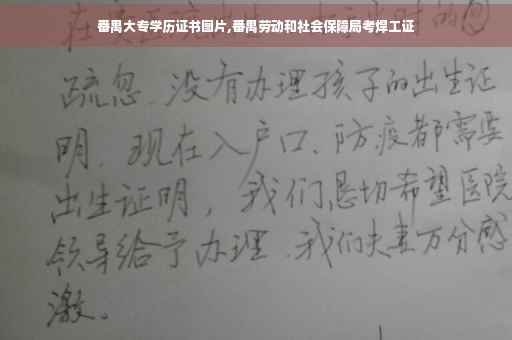 番禺大专学历证书图片,番禺劳动和社会保障局考焊工证
在
时的
疏忽、没有办理孩子的出生证
明、现在入户口、防疫都需要
出生证明，我们恳切希望医院
领导给予办理、我们夫妻万分感
激。